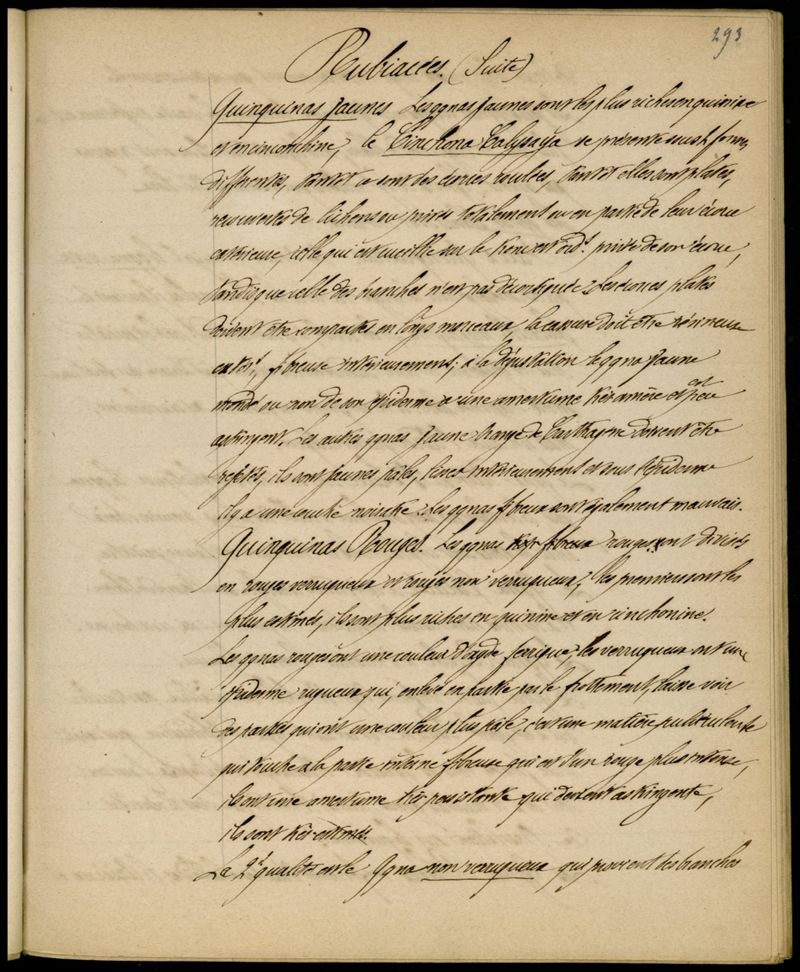 293
Rubiacées. (Suite)
Quinquinas jaunes Les qqnas jaunes sont les plus riches en quinine
et en cinchonine, le Cinchona Calysaya se présente sous 2 formes
différentes, tantôt ce sont des écorces roulées, tantôt elles sont plates,
recouvertes de lichens ou privés totalement ou en partie de leur écorce
extérieure, celle qui est cueillie sur le tronc est ordt. privée de son écorce,
tandis que celle des branches n'est pas décortiquée. Les écorces plates
doivent être compactes en longs morceaux, la cassure doit être résineuse
extért. fibreuse intérieurement; à la dégustation le qqna jaune
mondé ou non de son épiderme a une amertume très amère et est peu
astringent. Les autres qqnas jaune orangé de Carthagène doivent être
rejetés, ils sont jaunes pâles, lisses intérieurement et sous l'épiderme
il y a une couche noirâtre. Les qqnas fibreux sont également mauvais.
Quinquinas Rouges. Les qqnas fibreux rouges sont divisés
en rouges verruqueux et rouges non verruqueux; les premiers sont les
plus estimés, ils sont plus riches en quinine et en cinchonine.
Les qqnas rouges ont une couleur d'oxyde ferrique, les verruqueux ont un
épiderme rugueux qui, enlevé en partie par le frottement, laisse voir
des parties qui ont une couleur plus pâle, c'est une matière pulvérulente
qui touche à la partie interne fibreuse qui est d'un rouge plus intense,
ils ont une amertume très persistante qui devient astringente,
ils sont très estimés.
La 2e qualité est le qqna non verruqueux qui provient des branches